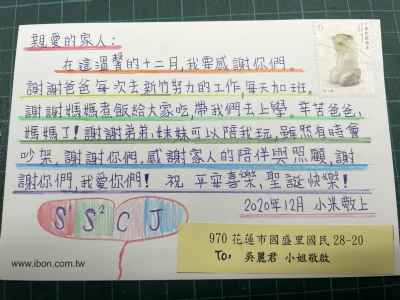 親愛的家人:
在這溫馨的十二月,我要感謝你們。
謝謝爸爸每次去新竹努力的工作,每天加班。
謝謝媽媽煮飯給大家吃,帶我們去上學。辛苦爸爸、
媽媽了!謝謝弟弟、妹妹可以陪我玩,雖然有時會
吵架,謝謝你們,感謝家人的陪伴與照顧,謝
謝你們,我愛你們! 祝 平安喜樂,聖誕快樂!
2020年12月 小米敬上
S S² C J
970 花蓮市國盛里國民 28-20
To: 吳麗君 小姐敬啟
www.ibon.com.tw